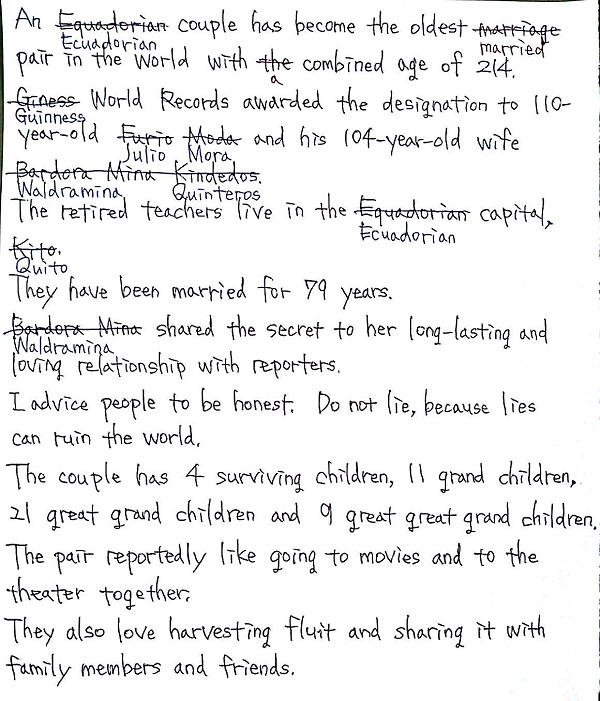 An Equadorian couple has become the oldest marriage
Ecuadorian married
pair in the world with the combined age of 214.
a
Giness World Records awarded the designation to 110-
Guinness
year-old Furio Moda and his 104-year-old wife
Julio Mora
Bardora Mina Kindedos.
Waldramina Quinteros
The retired teachers live in the Equadorian capital,
Ecuadorian
Kito.
Quito
They have been married for 79 years.
Bardora Mina shared the secret to her long-lasting and
Waldramina
loving relationship with reporters.
I advice people to be honest. Do not lie, because lies
can ruin the world.
The couple has 4 surviving children, 11 grand children,
21 great grand children and 9 great great grand children.
The pair reportedly like going to movies and to the
theater together.
They also love harvesting fluit and sharing it with
family members and friends.